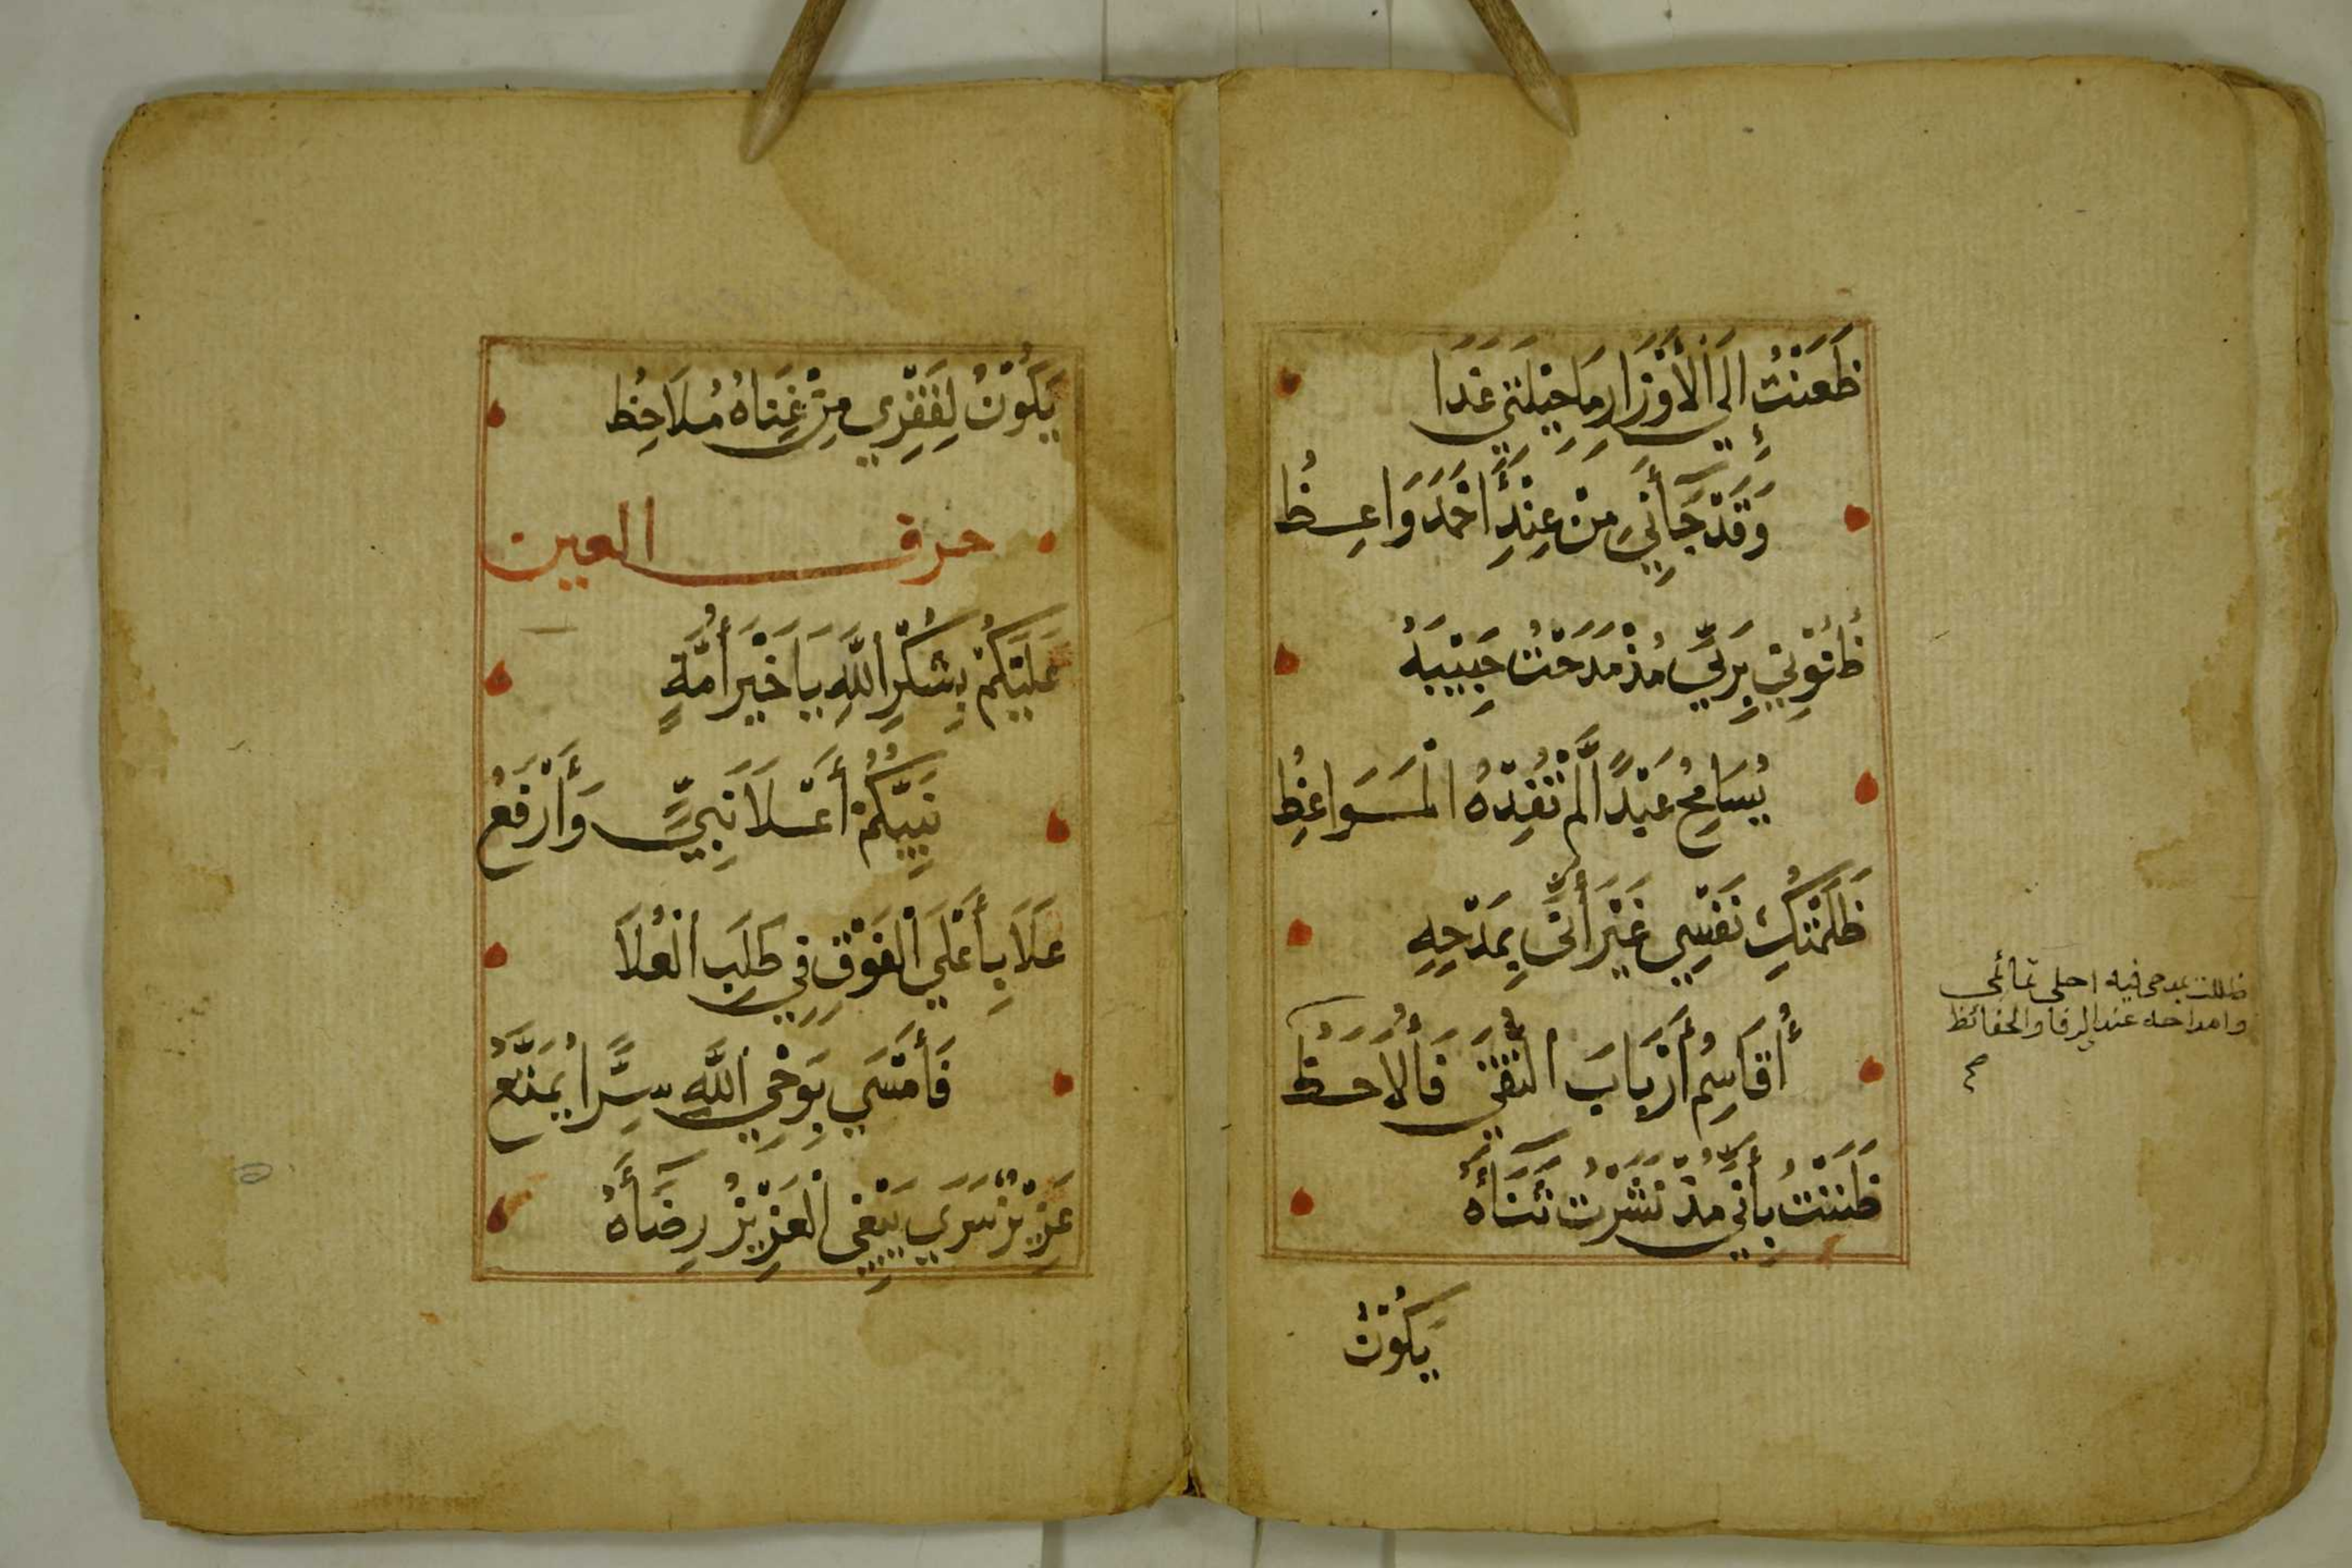 ظَعَنْتُ إِلَى الْأَوْزَارِ مَا حِيْلَتِي غَدًا
وَقَدْ جَآنِيَ مِنْ عِنْدِ أَحْمَدَ وَاعِظُ
ظُنُوْنِي بِرَبِّي مُذْ مَدَحْتُ حَبِيْبَهُ
يُسَامِحُ عَبْدًا لَّمْ تُفِدْهُ الْمَوَاعِظُ
ظَلَمْتُكِ نَفْسِي غَيْرَ أَنِّي بِمَدْحِهِ
أُقَاسِمُ أَرْبَابَ التُّقَى فَأُلَاحَظُ
ظَنَنْتُ بِأَنِّي مُذْ نَشَرْتُ ثَنَآءَهُ
يَكُوْنُ
ظللت بمدحي فيه احلى تمائمي
وامداحه عند الرفا والحفائظ
يَكُوْنُ لِفَقْرِي مِنْ غِنَاهُ مُلَاحِظُ
حرف العين
عَلَيْكُمْ بِشُكْرِ اللَّهِ يَا خَيْرَ أُمَّةٍ
نَبِيُّكُمْ أَعْلَا نَبِيٍّ وَأَرْفَعُ
عَلَا بِأَعْلَي الْفَوْقِ فِي طَلَبِ الْعُلَا
فَأَمْسَي بِوَحْيِ اللَّهِ سِرًّا يُمَتَّعُ
عَزِيْزٌ سَرَي يَبْغِي الْعَزِيْزُ رِضَآءَهُ